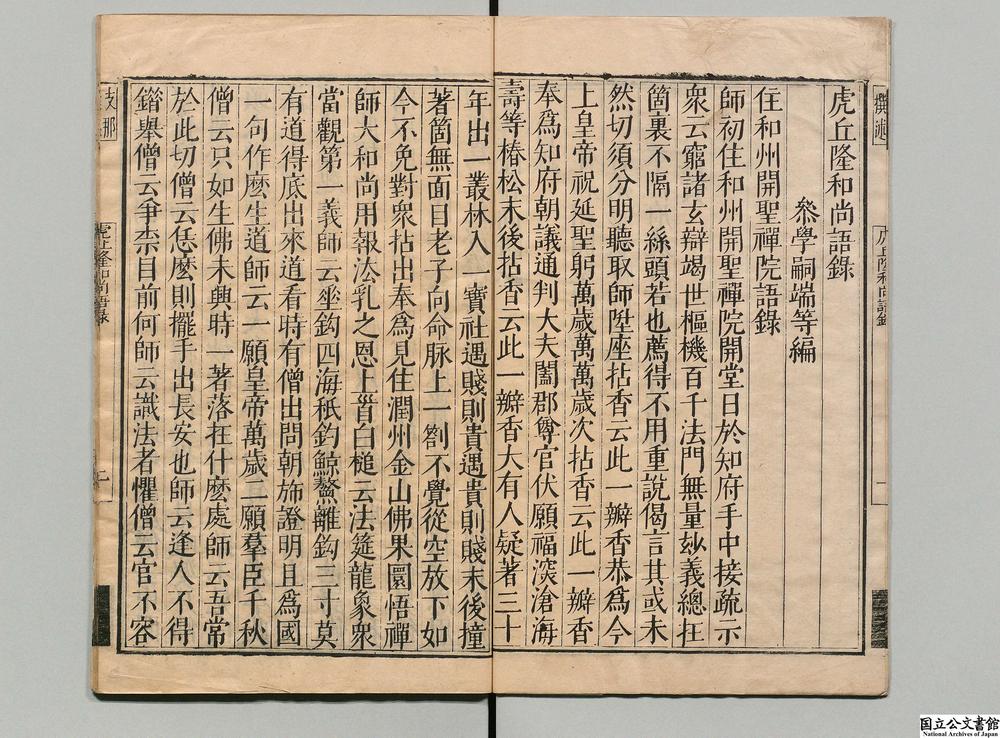 虎丘隆和尚語錄
參學嗣端等編
住和州開聖禪院語錄
師初住和州開聖禪院開堂日於知府手中接疏示
衆云窮諸玄辯竭世樞機百千法門無量玅義總在
箇裏不隔一絲頭若也薦得不用重說偈言其或未
然切須分明聽取師陞座拈香云此一瓣香恭爲今
上皇帝祝延聖躬萬歲萬萬歲次拈香云此一瓣香
奉爲知府朝議通判大夫闔郡尊官伏願福深滄海
壽等椿松末後拈香云此一瓣香大有人疑著三十
年出一叢林入一寶社遇賤則貴遇貴則賤末後撞
著箇無面目老子向命脉上一劄不覺從空放下如
今不免對衆拈出奉爲見住潤州金山佛果圜悟禪
師大和尚用報法乳之恩上首白槌云法筵龍象衆
當觀第一義師云垂鈎四海秖釣鯨鰲離鈎三寸莫
有道得底出來道看時有僧出問朝旆證明且爲國
一句作麽生道師云一願皇帝萬歲二願羣臣千秋
僧云只如生佛未興時一著落在什麽處師云吾常
於此切僧云恁麽則擺手出長安也師云逢人不得
錯舉僧云爭柰目前何師云識法者懼僧云官不容
支那
虎丘隆和尚語錄
一
国立公文書館
National Archives of Japan